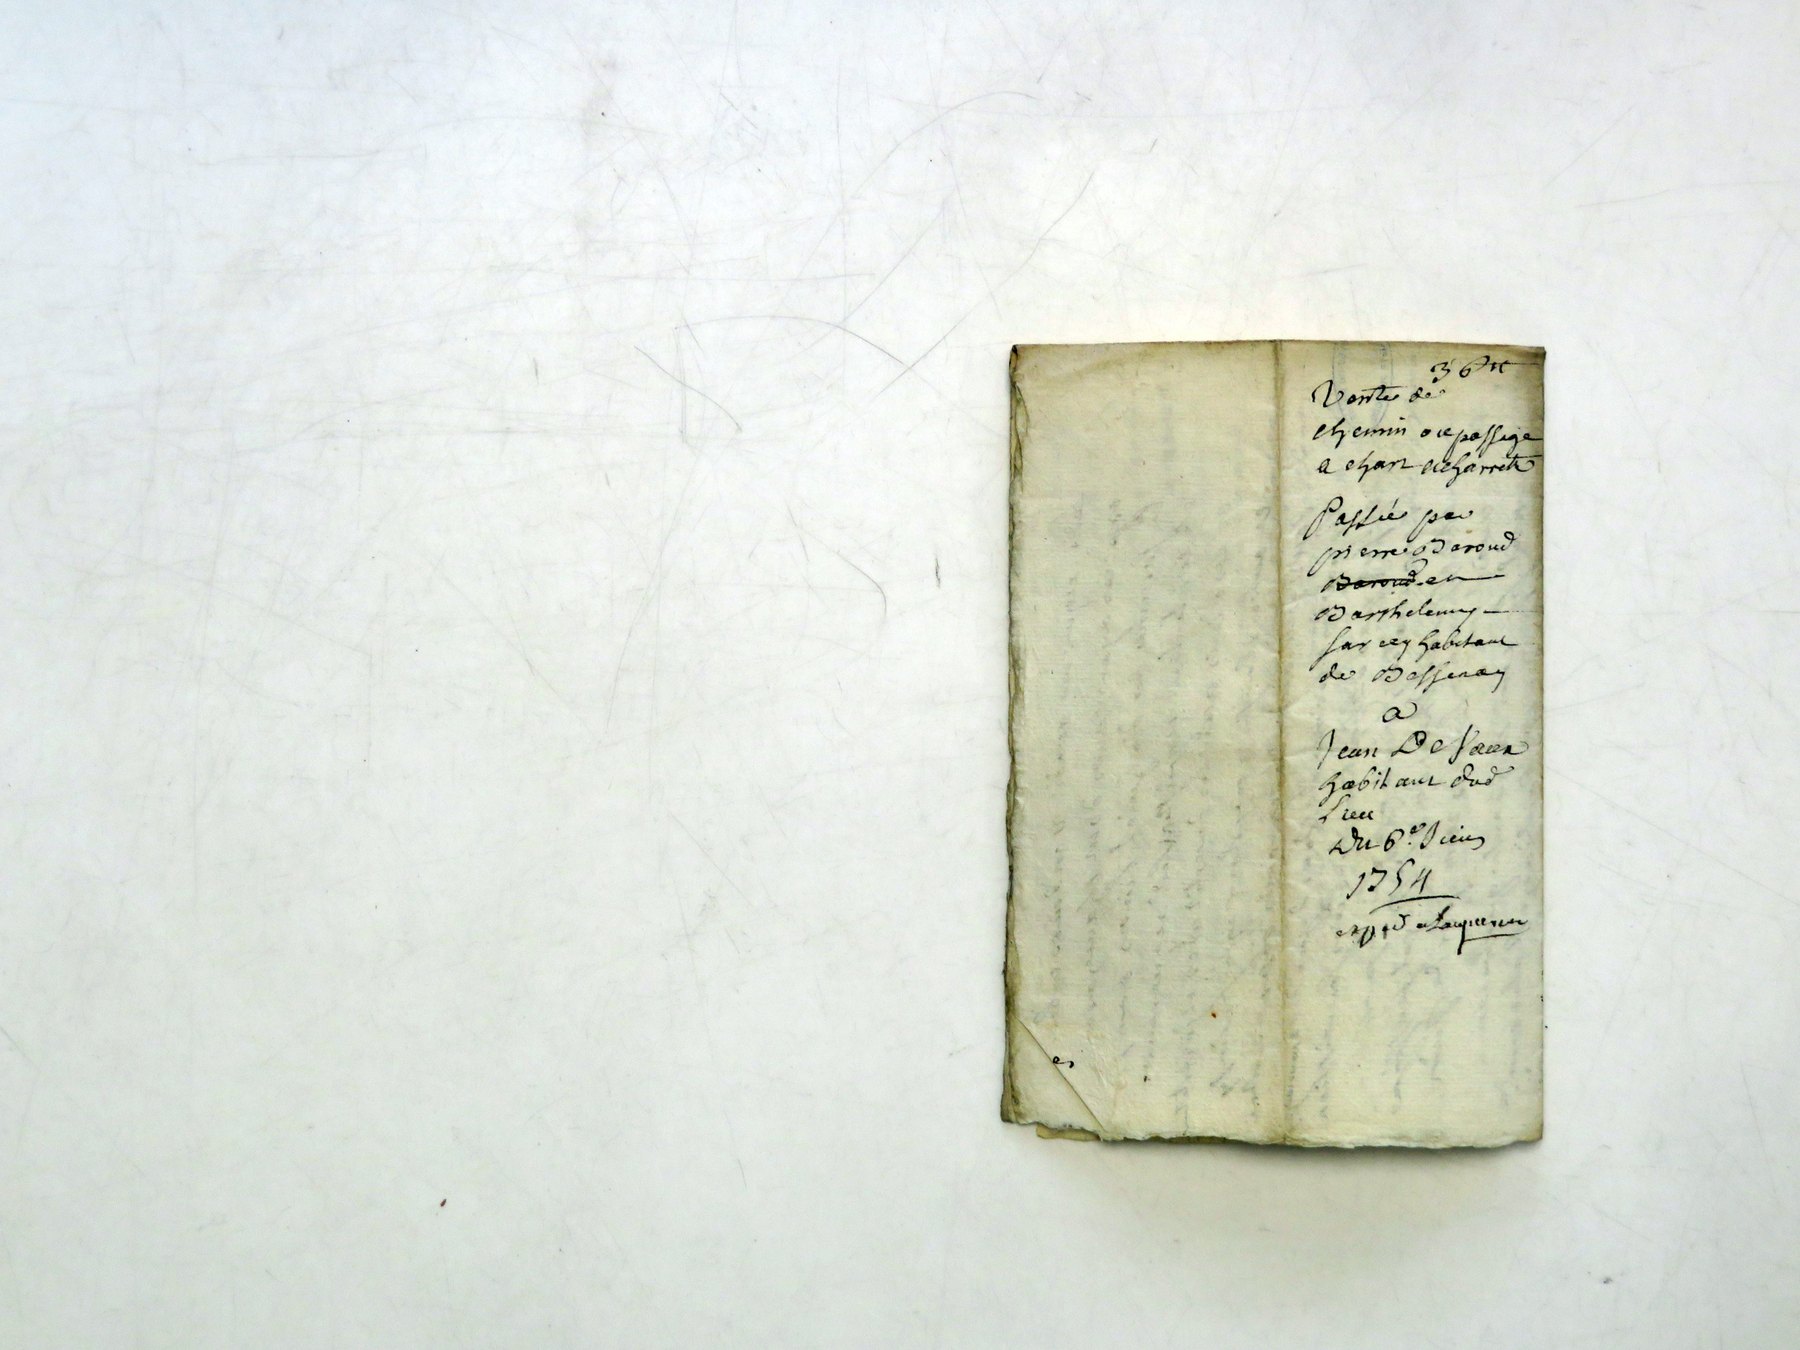 36tt
Vente de
chemin ou passage
a char et charrette
Passée par
pierre Baroud
Baroud et
Barthelemy
Sarcey habitant
de Bessenay
a
Jean De
habitant dud
Lieu
Du 6e
1754
expéd